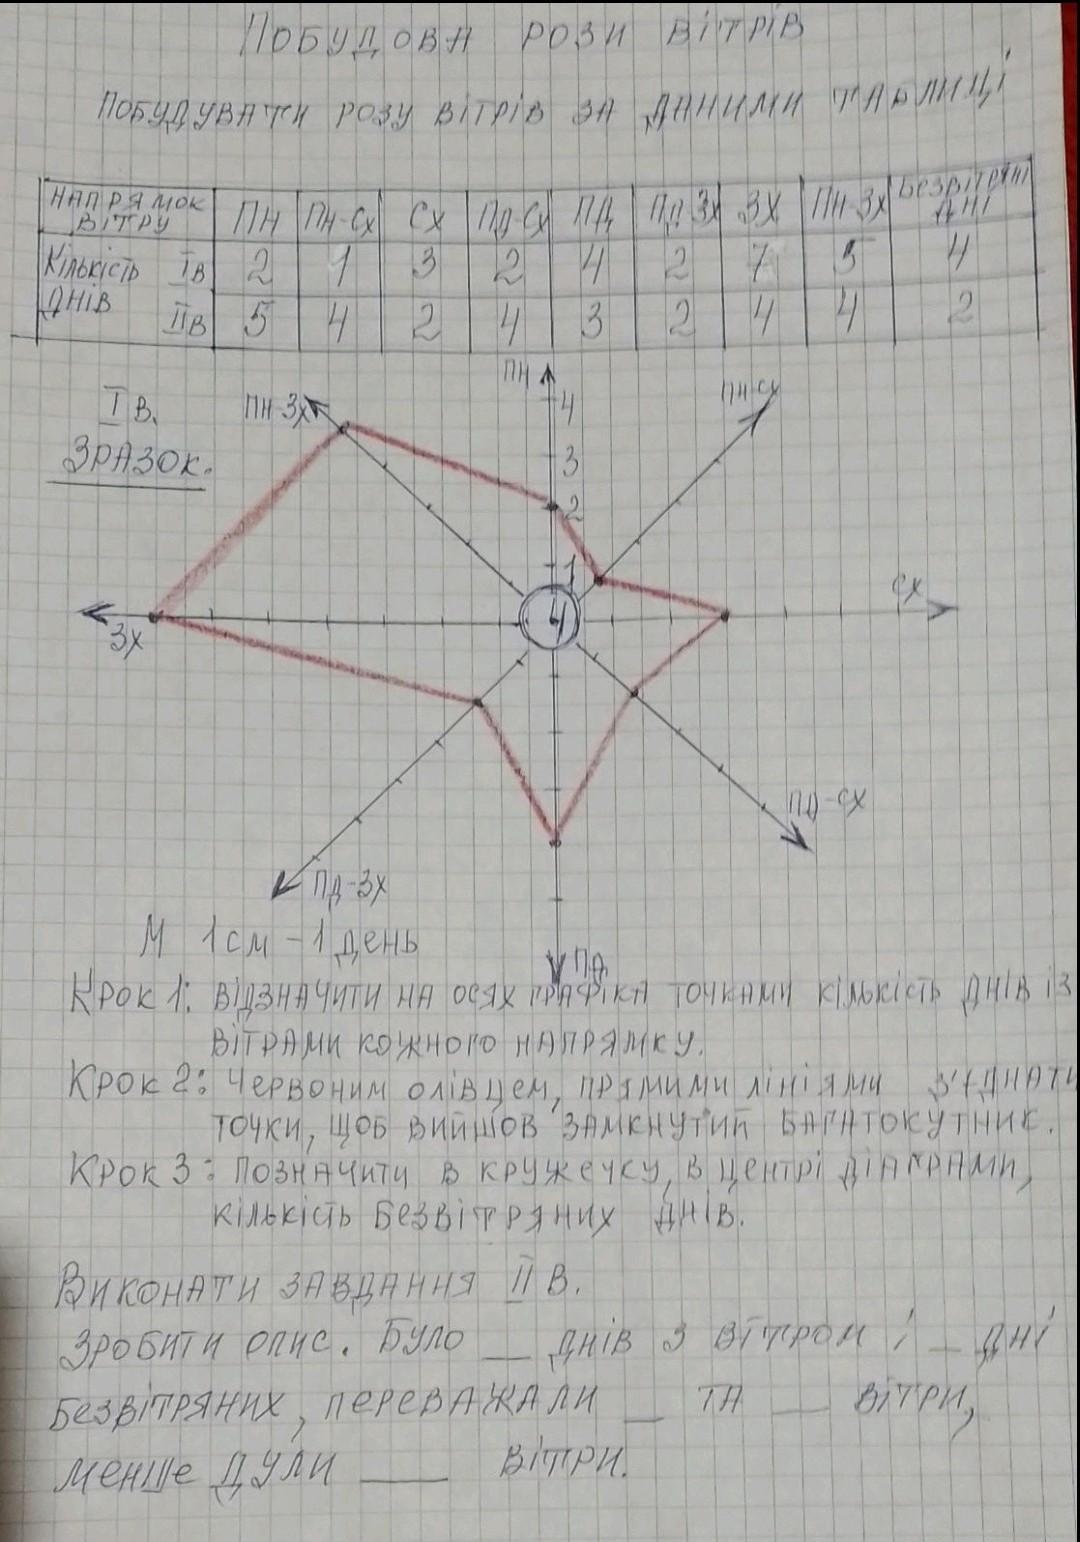 Побудова рози вітрів
Побудувати розу вітрів за даними таблиці
Напрямок вітру ПН ПН-Сх Сх ПД-Сх ПД ПД-Зх Зх ПН-Зх Безвітряні дні
Кількість днів Iв 2 1 3 2 4 2 7 5 4
IIв 5 4 2 4 3 2 4 4 2
I в.
Зразок.
ПН
ПН-Зх
ПН-Сх
4
3
2
1
4
Сх
Зх
ПД-Сх
ПД-Зх
ПД
М 1см - 1 день
Крок 1: Відзначити на осях графіка точками кількість днів із
вітрами кожного напрямку.
Крок 2: Червоним олівцем, прямими лініями з'єднати
точки, щоб вийшов замкнутий багатокутник.
Крок 3: Позначити в кружечку, в центрі діаграми,
кількість безвітряних днів.
Виконати завдання II В.
Зробити опис. Було __ днів з вітром і __ дні
безвітряних, переважали __ та __ вітри,
менше дули __ вітри.